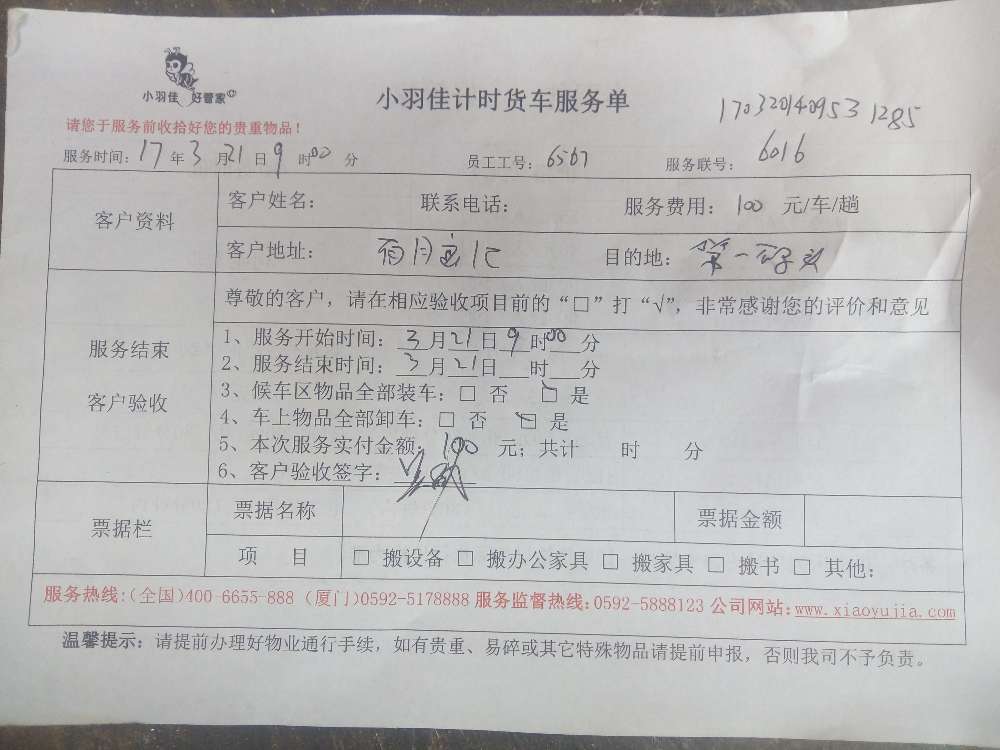 小羽佳 好管家
小羽佳计时货车服务单
170320140953 1285
请您于服务前收拾好您的贵重物品！
服务时间：17年3月21日9时00分 员工工号：6567 服务联号：6016
客户资料
客户姓名： 联系电话： 服务费用：100 元/车/趟
客户地址： 目的地：第一
服务结束
客户验收
尊敬的客户，请在相应验收项目前的“□”打“√”，非常感谢您的评价和意见
1、服务开始时间：3月21日9时00分
2、服务结束时间：3月21日 时 分
3、候车区物品全部装车：□ 否 □ 是
4、车上物品全部卸车：□ 否 □ 是
5、本次服务实付金额：100 元；共计 时 分
6、客户验收签字：
票据栏
票据名称 票据金额
项 目 □ 搬设备 □ 搬办公家具 □ 搬家具 □ 搬书 □ 其他：
服务热线：（全国）400-6655-888（厦门）0592-5178888 服务监督热线：0592-5888123 公司网站：www.xiaoyujia.com
温馨提示：请提前办理好物业通行手续，如有贵重、易碎或其它特殊物品请提前申报，否则我司不予负责。